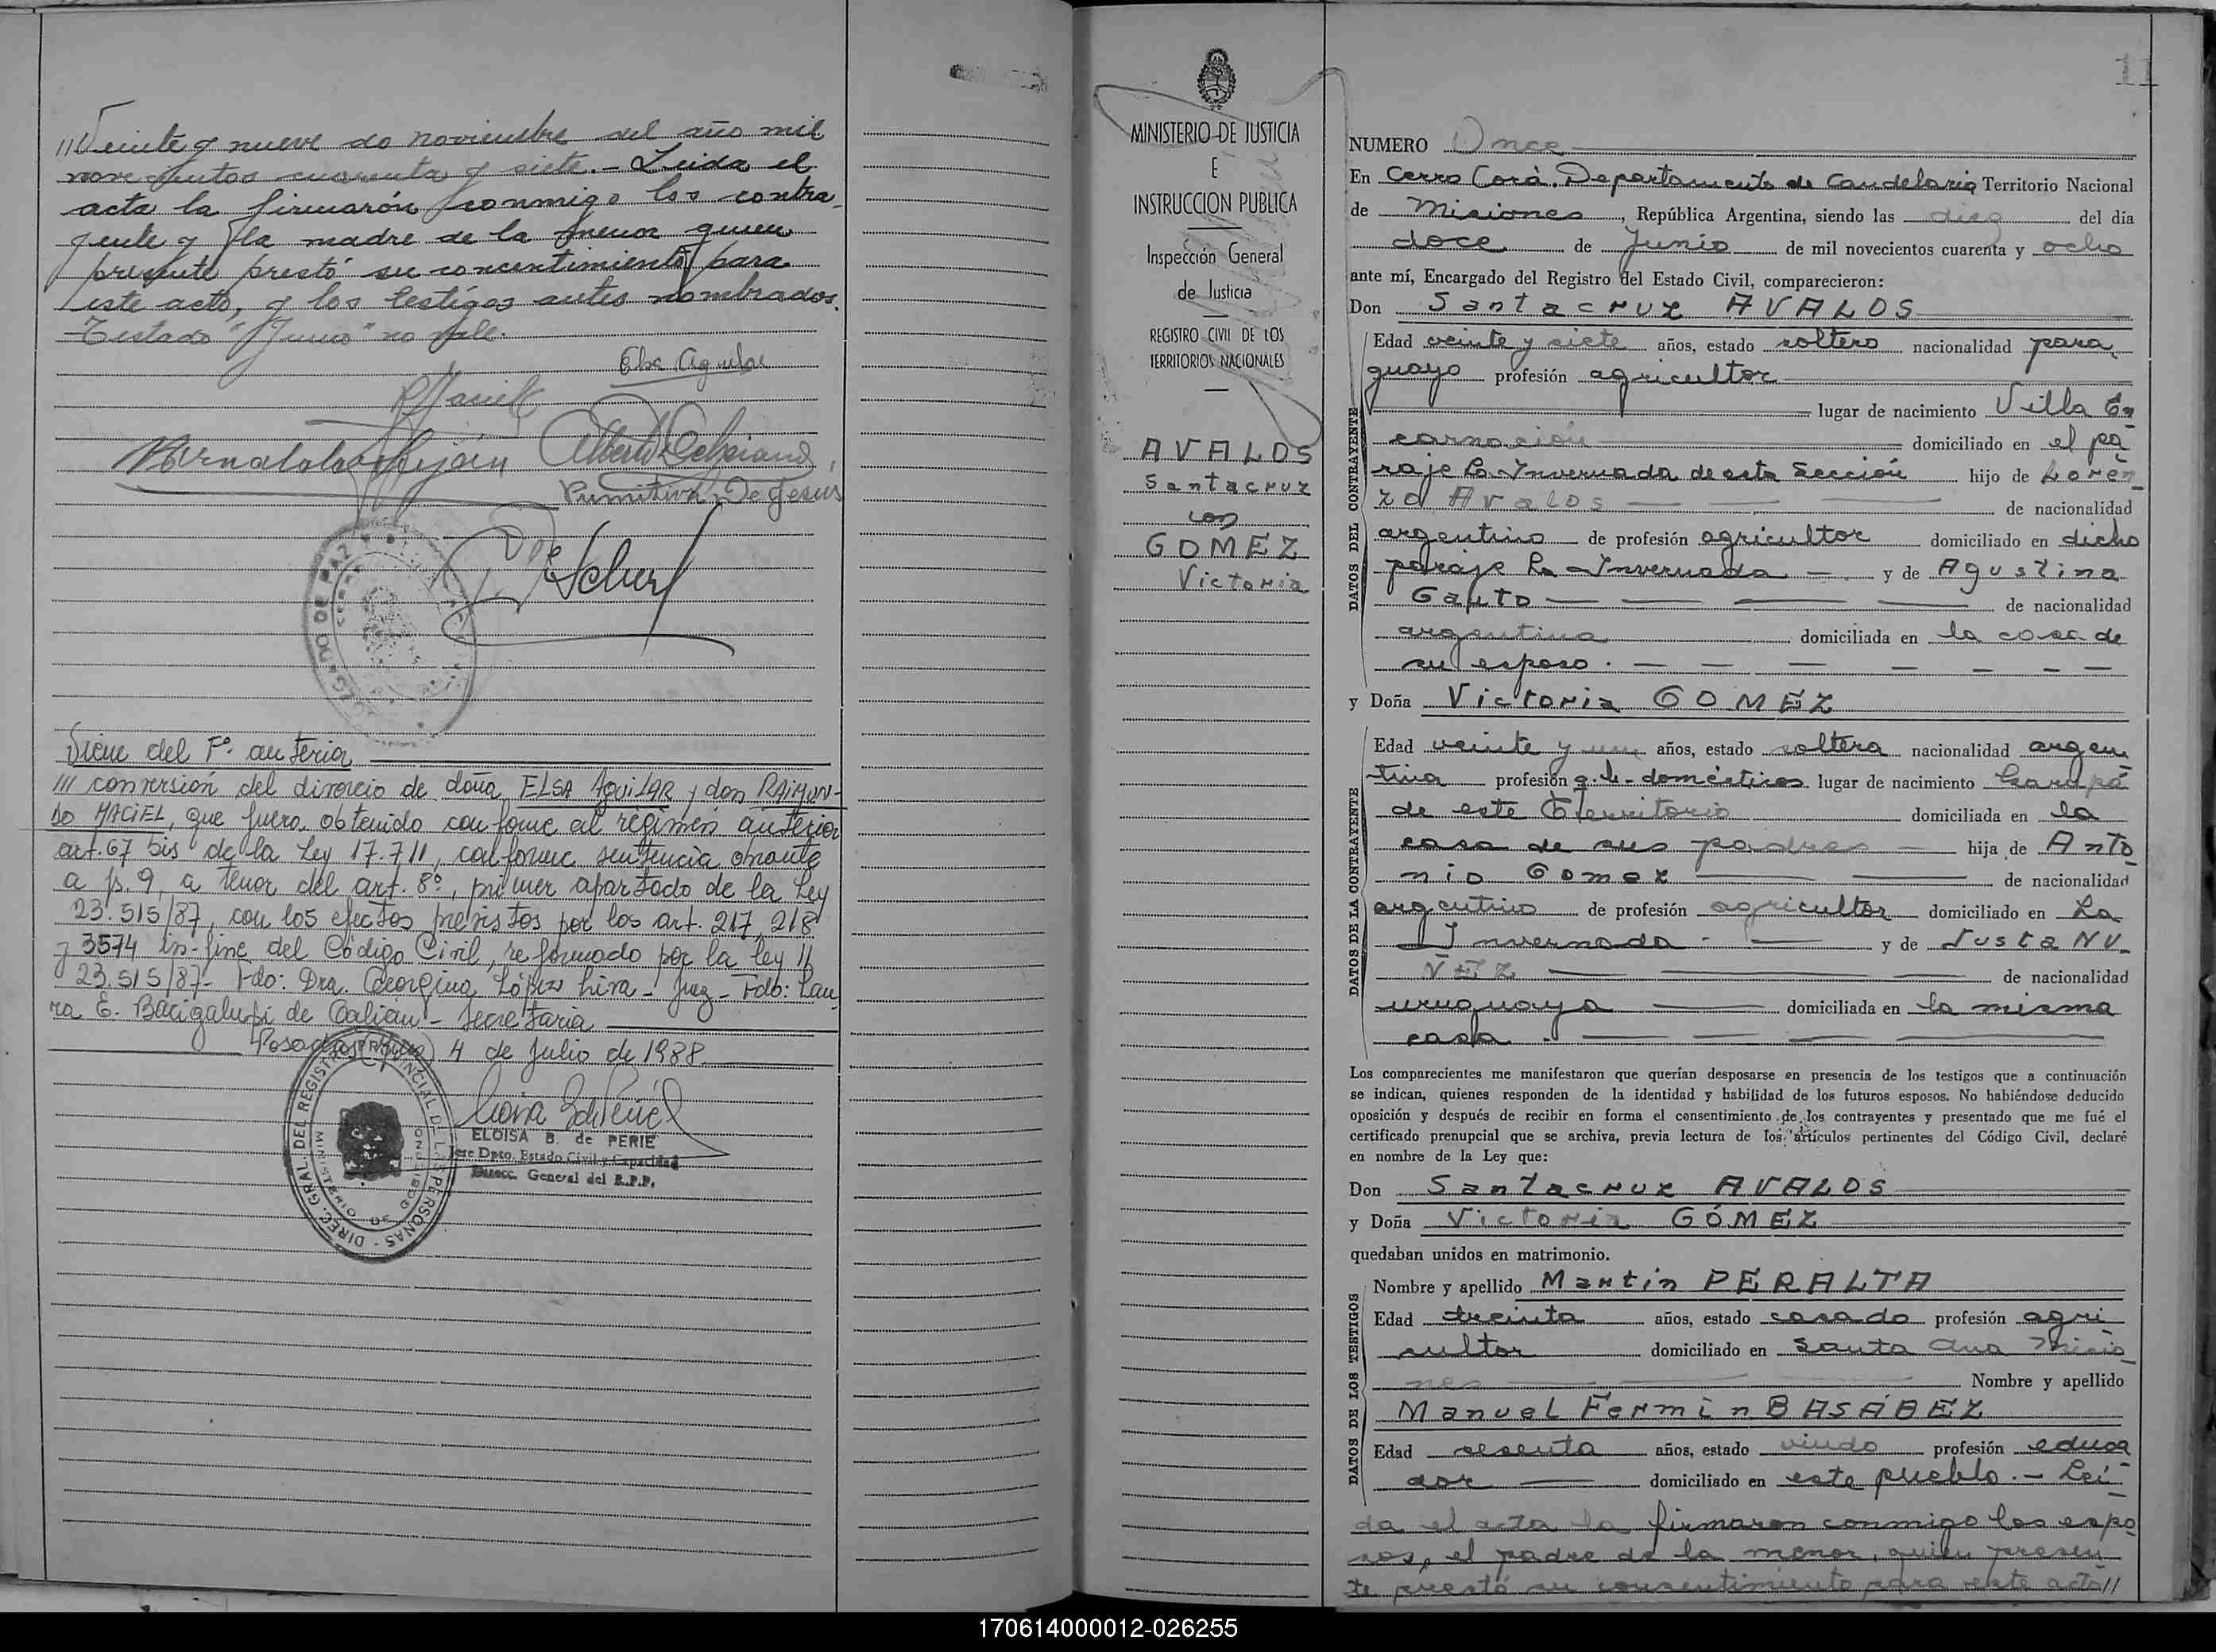 //Veinte y nueve de noviembre del año mil
novecientos cuarenta y siete.- Leida el
acta la firmarón conmigo los contra-
yente y la madre de la menor quien
presente prestó su concentimiento para
este acto, y los testigos antes nombrados.
-Testado "Junio" no vale.
Elsa Aguilar
Primitiva De Jesus
JUZGADO DE PAZ
Viene del Fº. anterior
/// conversión del divorcio de doña ELSA AguiLAR y don RAiMUN-
DO MACIEL, que fuera obtenido conforme al régimen anterior
art. 67 bis de la Ley 17.711, conforme sentencia obrante
a fs. 9, a tenor del art. 8º, primer apartado de la Ley
23.515/87, con los efectos previstos por los art. 217, 218
y 3574 in-fine del Código Civil, reformado por la ley //
23.515/87- Fdo: Dra. Georgina López Liva - Juez - Fdo: Lau
ra E. Bacigalupi de Galián - Secretaria
Posadas 4 de Julio de 1988.
DIREC. GRAL. DEL REGISTRO PROVINCIAL DE LAS PERSONAS
MINISTERIO DE GOBIERNO
ELOISA B. de PERIE
Jefe Dpto. Estado Civil y Capacidad
Direcc. General del R.P.P.
MINISTERIO DE JUSTICIA
E
INSTRUCCION PUBLICA
Inspección General
de Justicia
REGISTRO CIVIL DE LOS
TERRITORIOS NACIONALES
AVALOS
Santacruz
con
GOMEZ
Victoria
11
NUMERO Once
En Cerro Corá, Departamento de Candelaria Territorio Nacional
de Misiones, República Argentina, siendo las diez del día
doce de Junio de mil novecientos cuarenta y ocho
ante mí, Encargado del Registro del Estado Civil, comparecieron:
Don Santacruz AVALOS
DATOS DEL CONTRAYENTE
Edad veinte y siete años, estado soltero nacionalidad para
guayo profesión agricultor
lugar de nacimiento Villa En
carnación domiciliado en el pa
raje La Invernada de esta Sección hijo de Loren
zo Avalos de nacionalidad
argentino de profesión agricultor domiciliado en dicho
paraje La Invernada y de Agustina
Gauto de nacionalidad
argentina domiciliada en la casa de
su esposo.
y Doña Victoria GOMEZ
DATOS DE LA CONTRAYENTE
Edad veinte y un años, estado soltera nacionalidad argen
tina profesión q.h-domésticos lugar de nacimiento Garupá
de este Territorio domiciliada en la
casa de sus padres hija de Anto
nio Gomez de nacionalidad
argentino de profesión agricultor domiciliado en La
Invernada y de Justa NU-
ÑEZ de nacionalidad
uruguaya domiciliada en la misma
casa.
Los comparecientes me manifestaron que querían desposarse en presencia de los testigos que a continuación
se indican, quienes responden de la identidad y habilidad de los futuros esposos. No habiéndose deducido
oposición y después de recibir en forma el consentimiento de los contrayentes y presentado que me fué el
certificado prenupcial que se archiva, previa lectura de los artículos pertinentes del Código Civil, declaré
en nombre de la Ley que:
Don Santacruz AVALOS
y Doña Victoria GÓMEZ
quedaban unidos en matrimonio.
DATOS DE LOS TESTIGOS
Nombre y apellido Martin PERALTA
Edad treinta años, estado casado profesión agri
cultor domiciliado en Santa Ana Misio
nes Nombre y apellido
Manuel Fermin BASÁBEZ
Edad sesenta años, estado viudo profesión educa
dor domiciliado en este pueblo.- Leí-
da el acta la firmaron conmigo los espo
sos, el padre de la menor, quien presen
te prestó su consentimiento para este acto//
170614000012-026255